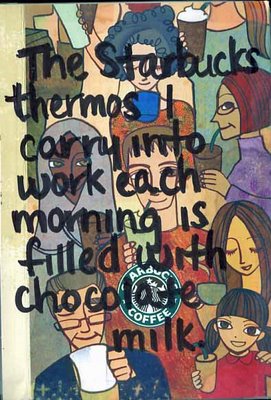 The Starbucks
thermos I
carry into
work each
morning is
filled with
chocolate
milk.
COFFEE